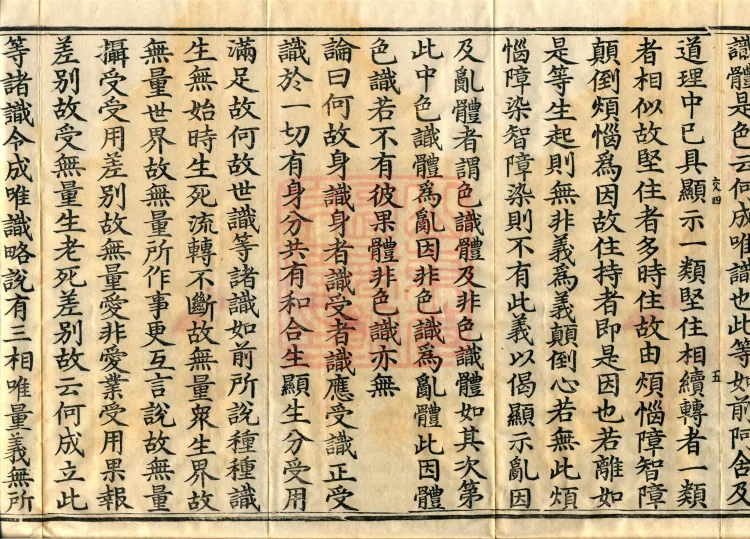 識體是色云何成唯識也此等如前阿含及
道理中已具顯示一類堅住相續轉者一類
者相似故堅住者多時住故由煩惱障智障
顛倒煩惱爲因故住持者即是因也若離如
是等生起則無非義爲義顛倒心若無此煩
惱障染智障染則不有此義以偈顯示亂因
及亂體者謂色識體及非色識體如其次第
此中色識體爲亂因非色識爲亂體此因體
色識若不有彼果體非色識亦無
論曰何故身識身者識受者識應受識正受
識於一切有身分共有和合生顯生分受用
滿足故何故世識等諸識如前所說種種識
生無始時生死流轉不斷故無量衆生界故
無量世界故無量所作事更互言說故無量
攝受受用差別故無量愛非愛業受用果報
差別故受無量生老死差別故云何成立此
等諸識令成唯識略說有三相唯量義無所
交四
五